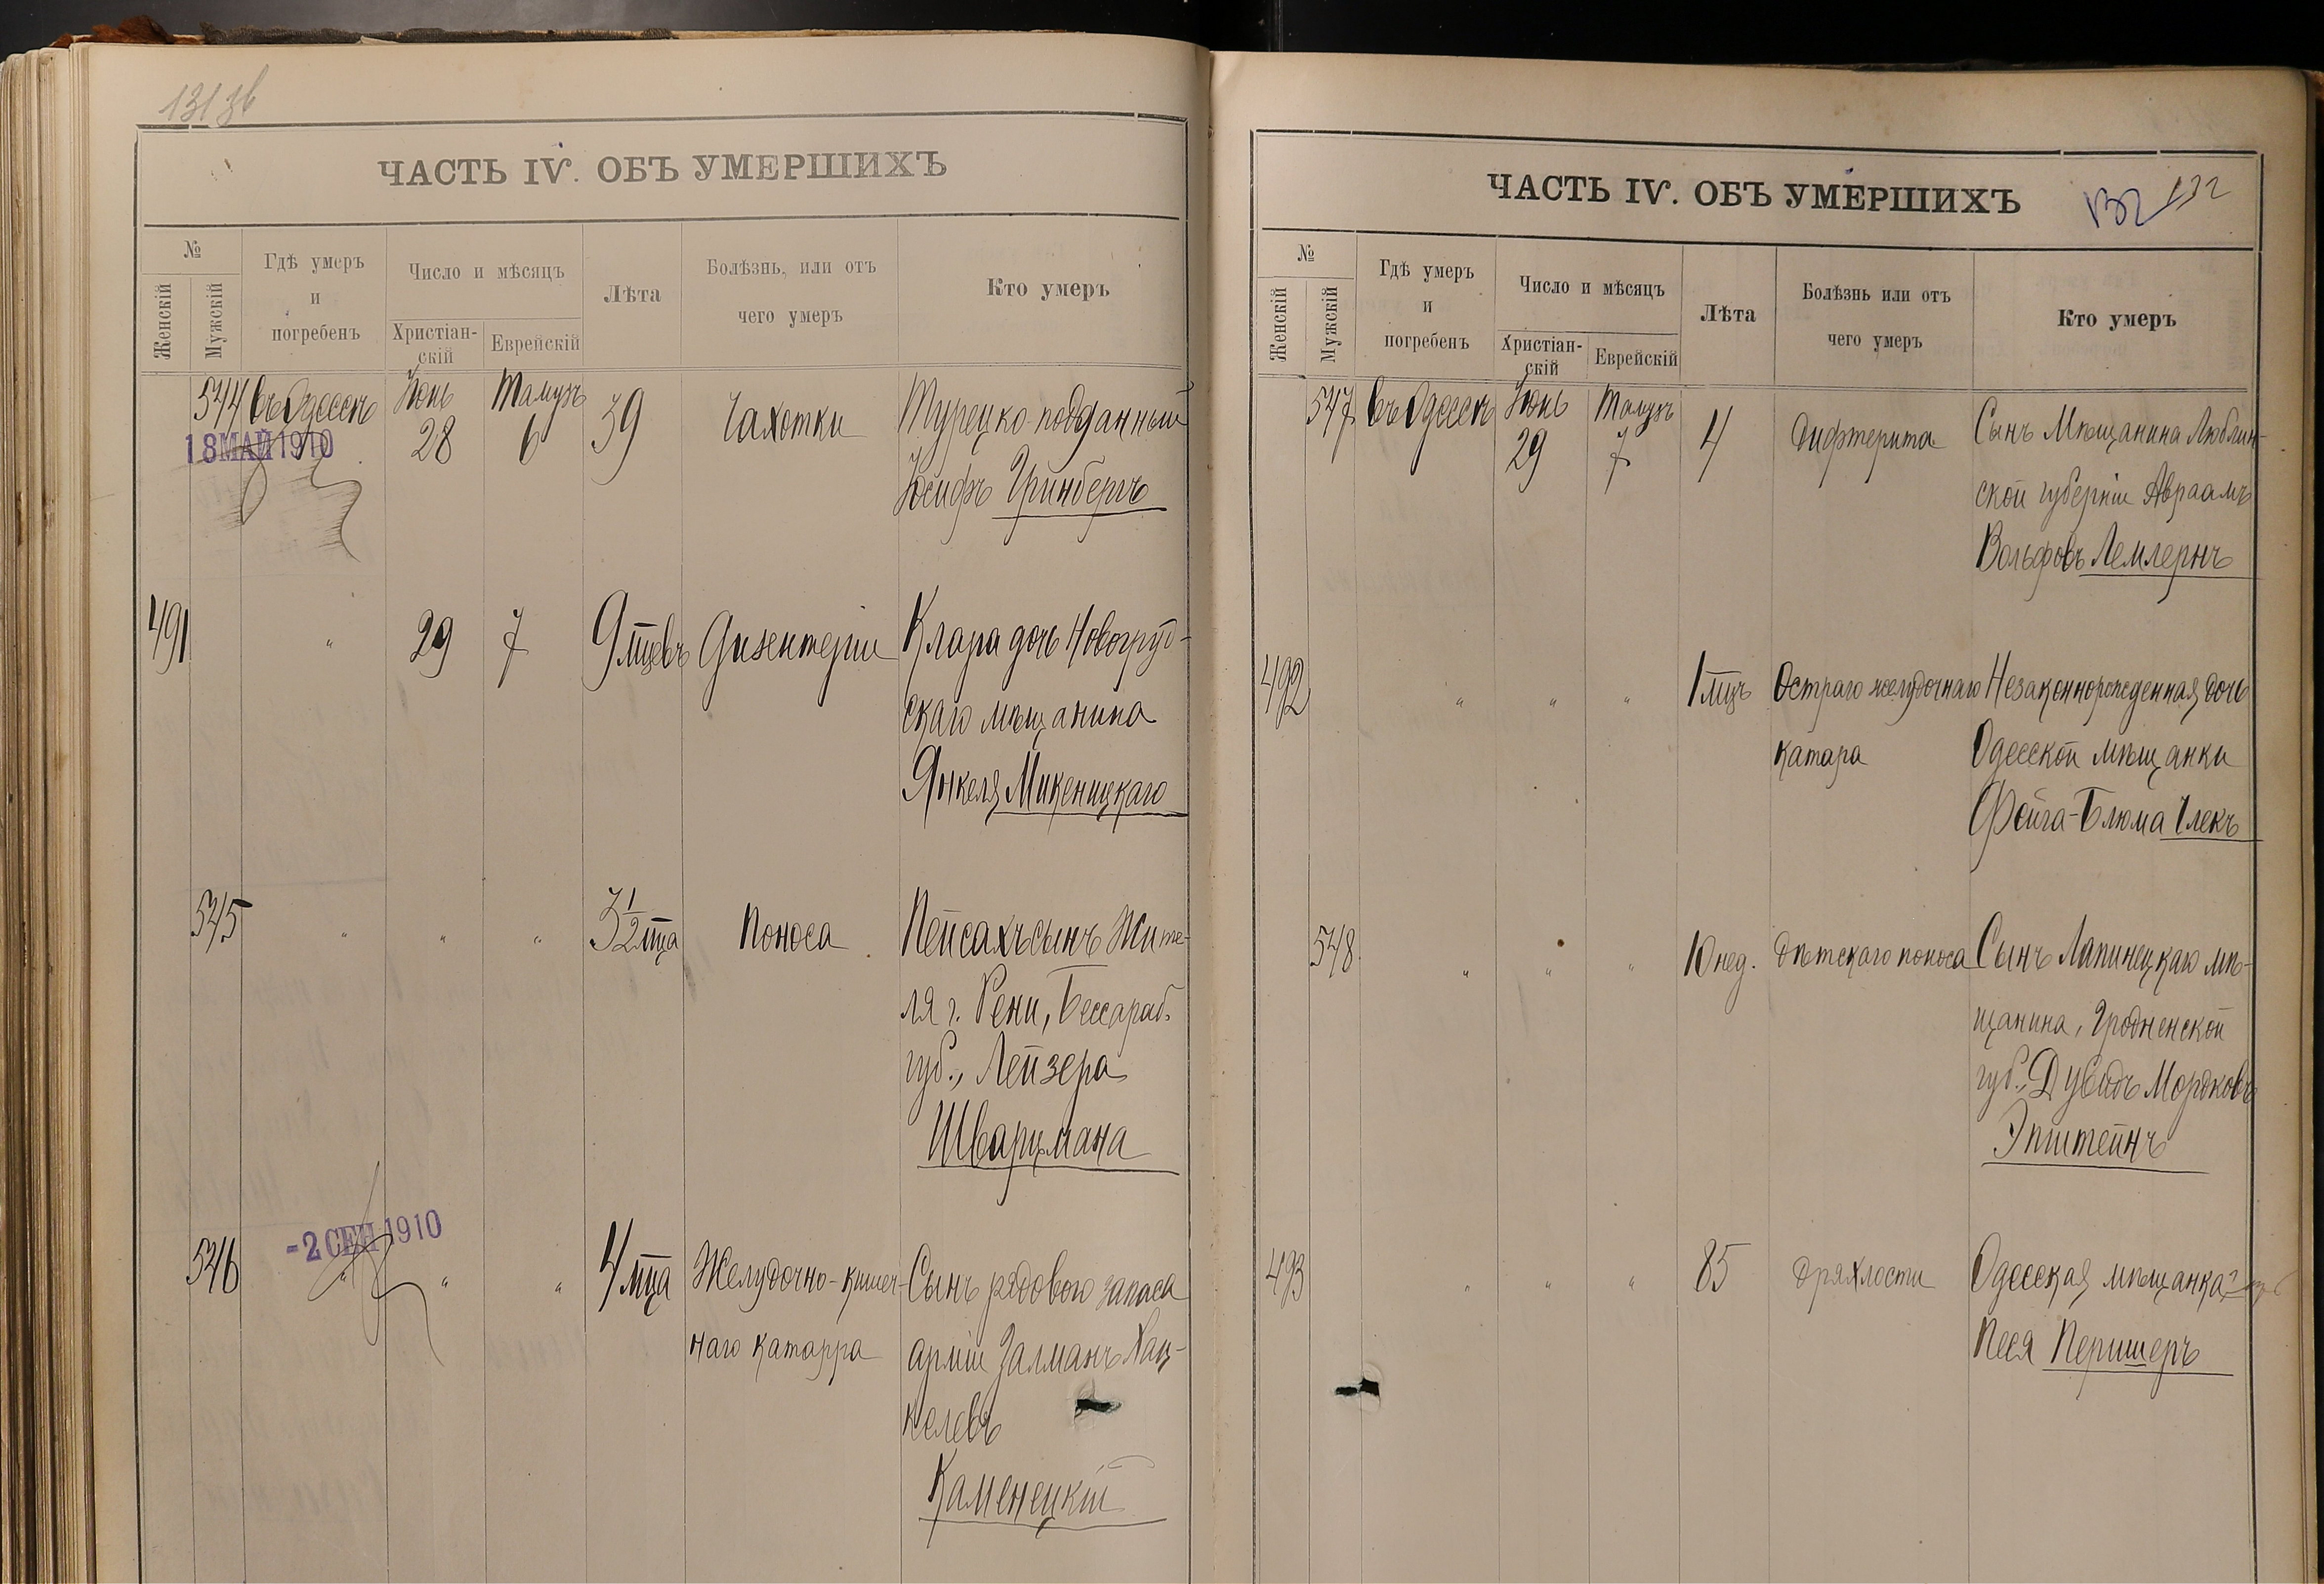 131 зв
ЧАСТЬ IV. ОБЪ УМЕРШИХЪ
№
Женскій
Мужскій
Гдѣ умеръ
и
погребенъ
Число и мѣсяцъ
Христіан-
скій
Еврейскій
Лѣта
Болѣзнь, или отъ
чего умеръ
Кто умеръ
544 въ Одессѣ Іюнь Тамузъ
28 6 39 Чахотки Турецко-подданный
Іосифъ Гринбергъ
18 МАЙ 1910
491 " 29 7 9 мцевъ Дизентеріи Клара дочь Новогруд-
скаго мѣщанина
Янкеля Микеницкаго
545 " " " 3 1/2 мца Поноса Пейсахъ сынъ Жите-
ля г. Рени, Бессараб.
губ., Лейзера
Шварцмана
-2 СЕН 1910
546 " " " 4 мца Желудочно-кишеч- Сынъ рядового запаса
наго катарра арміи Залманъ Хац-
келевъ
Каменецкій
ЧАСТЬ IV. ОБЪ УМЕРШИХЪ
132 132
№
Женскій
Мужскій
Гдѣ умеръ
и
погребенъ
Число и мѣсяцъ
Христіан-
скій
Еврейскій
Лѣта
Болѣзнь или отъ
чего умеръ
Кто умеръ
547 въ Одессѣ Іюнь Тамузъ
29 7 4 Дифтерита Сынъ Мѣщанина Люблин-
ской губерніи Авраамъ
Вольфовъ
492 " " " 1 мцъ Остраго желудочнаго Незаконнорожденная дочь
катара Одесской мѣщанки
Фейга-Блюма
548 " " " 10 нед. Дѣтскаго поноса Сынъ Лапинецкаго мѣ-
щанина, Гродненской
губ., Дувидъ Мордковъ
Эпштейнъ
493 " " " 85 Дряхлости Одесская мѣщанка
Песя Першеръ